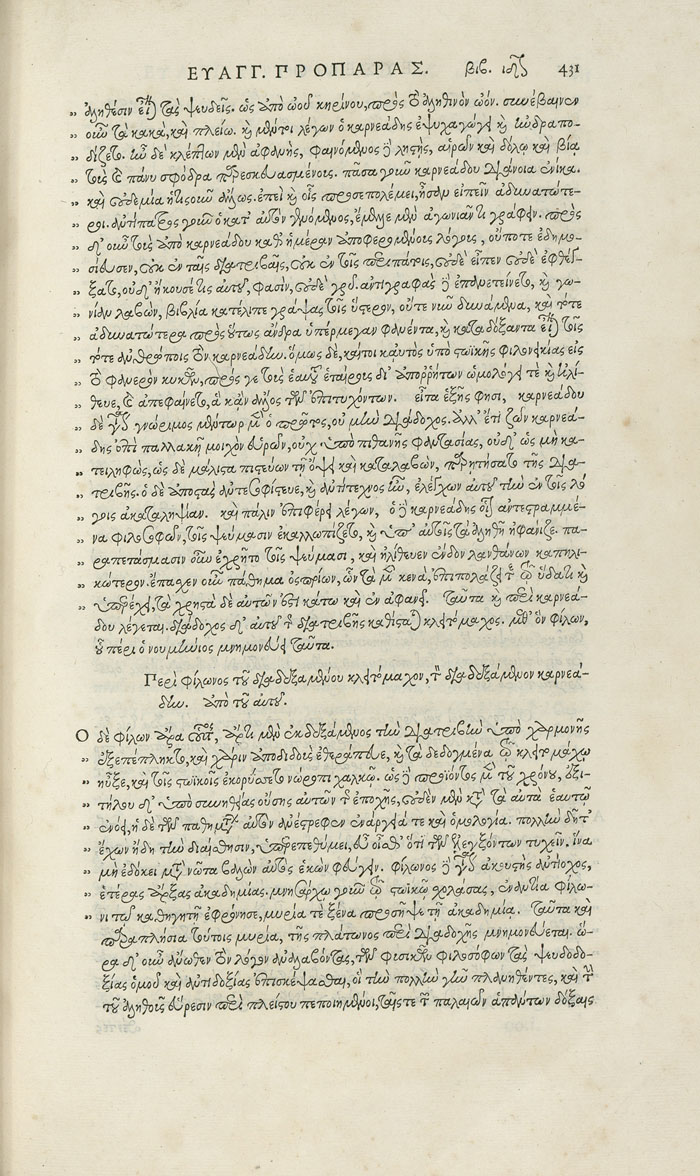 ΕΥΑΓΓ. ΠΡΟΠΑΡΑΣ. βιβ. ιδ 431
„ ἀληθέσιν εἶναι τὰς ψευδεῖς. ὡς ἀπὸ ὠοῦ κηρίνου, πρὸς τὸ ἀληθινὸν ὠόν. συνέβαινεν
„ οὖν τὰ κακὰ, καὶ πλείω. καὶ μέντοι λέγων ὁ καρνεάδης ἐψυχαγώγει καὶ ἠνδραπο-
„ δίζετο. ἦν δὲ κλέπτων μὲν ἀφανὴς, φαινόμενος δὲ λῃστὴς, αἱρῶν καὶ δόλῳ καὶ βίᾳ
„ τοὺς καὶ πάνυ σφόδρα παρεσκευασμένοις. πᾶσα γοῦν καρνεάδου διάνοια ἐνίκα.
„ καὶ οὐδεμία ἡτισοῦν ἄλλως. ἐπεὶ καὶ οἷς προσεπολέμει, ἦσαν εἰπεῖν ἀδυνατώτε-
„ ροι. ἀντίπατρος γοῦν ὁ κατ' αὐτὸν γενόμενος, ἔμελλε μὲν ἀγωνιᾶν τι γράφειν. πρὸς
„ δ' οὖν τοὺς ἀπὸ καρνεάδου καθ' ἡμέραν ἀποφερομένους λόγους, οὔποτε ἐδημο-
„ σίευσεν, οὐκ ἐν ταῖς διατριβαῖς, οὐκ ἐν τοῖς περιπάτοις, οὐδὲ εἶπεν οὐδὲ ἐφθέγ-
„ ξατο, οὐδ' ἤκουσέ τις αὐτοῦ, φασὶν, οὐδὲ γρύ. ἀντιγραφὰς δὲ ἐπανετείνετο, καὶ γω-
„ νίαν λαβὼν, βιβλία κατέλιπε γράψας τοῖς ὕστερον, οὔτε νῦν δυνάμενα, καὶ τότε
„ ἀδυνατώτερα πρὸς οὕτως ἄνδρα ὑπέρμεγαν φανέντα, καὶ καταδόξαντα εἶναι τοῖς
„ τότε ἀνθρώποις τὸν καρνεάδην. ὅμως δὲ, καίτοι καυτὸς ὑπὸ στωϊκῆς φιλονεικίας εἰς
„ τὸ φανερὸν κυκῶν, πρός γε τοὺς ἑαυτοῦ ἑταίρους δι' ἀπορρήτων ὡμολόγει τε καὶ ἠλή-
„ θευε, καὶ ἀπεφαίνετο, ἃ κἂν ἄλλος τῶν ἐπιτυχόντων. εἶτα ἑξῆς φησι, καρνεάδου
„ δὲ γίνεται γνώριμος μέντωρ μὲν ὁ πρῶτος, οὐ μὴν διάδοχος. ἀλλ' ἔτι ζῶν καρνεά-
„ δης ἐπὶ παλλακῇ μοιχὸν εὑρὼν, οὐχ ὑπὸ πιθανῆς φαντασίας, οὐδ' ὡς μὴ κα-
„ τειληφὼς, ὡς δὲ μάλιστα πιστεύων τῇ ὄψει καὶ καταλαβὼν, παρῃτήσατο τῆς δια-
„ τριβῆς. ὁ δὲ ἀποστὰς ἀντεσοφίστευε, καὶ ἀντίτεχνος ἦν, ἐλέγχων αὐτοῦ τὴν ἐν τοῖς λό
„ γοις ἀκαταληψίαν. καὶ πάλιν ἐπιφέρει λέγων, ὁ δὲ καρνεάδης οἷον ἀντεστραμμέ-
„ να φιλοσοφῶν, τοῖς ψεύμασιν ἐκαλλωπίζετο, καὶ ὑπ' αὐτοῖς τὰ ἀληθῆ ἠφάνιζε. πα-
„ ραπετάσμασιν οὖν ἐχρῆτο τοῖς ψεύμασι, καὶ ἠλήθευεν ἔνδον λανθάνων καπηλι-
„ κώτερον. ἔπασχεν οὖν πάθημα ὀσπρίων, ὧν τὰ μὲν κενὰ, ἐπιπολάζει τε τῷ ὕδατι καὶ
„ ὑπερέχει, τὰ χρηστὰ δὲ αὐτῶν ἐστι κάτω καὶ ἐν ἀφανεῖ. ταῦτα καὶ περὶ καρνεά-
δου λέγεται. διάδοχος δ' αὐτοῦ τῆς διατριβῆς καθίσταται κλειτόμαχος. μεθ' ὃν φίλων,
οὗ πέρι ὁ νουμήνιος μνημονεύει ταῦτα.
Περὶ φίλωνος τοῦ διαδεξαμένου κλειτόμαχον, τὸν διαδεξάμενον καρνεά-
δην. ἀπὸ τοῦ αὐτοῦ.
Ὁ δὲ φίλων ἄρα οὗτος, ἄρτι μὲν ἐκδεξάμενος τὴν διατριβὴν ὑπὸ χαρμονῆς
„ ἐξεπέπληκτο, καὶ χάριν ἀποδιδοὺς ἐθεράπευε, καὶ τὰ δεδογμένα τῷ κλειτομάχῳ
„ ηὖξε, καὶ τοῖς στωϊκοῖς ἐκορύσσετο νώροπι χαλκῷ. ὡς δὲ προϊόντος μὲν τοῦ χρόνου, ἐξι-
„ τήλου δ' ὑπὸ συνηθείας οὔσης αὐτῶν τῆς ἐποχῆς, οὐδὲν μὲν κατὰ τὰ αὐτὰ ἑαυτῷ
„ ἐνόει, ἡ δὲ τῶν παθημάτων αὐτὸν ἀνέστρεφεν ἐνάργειά τε καὶ ὁμολογία. πολλὴν δῆτ'
„ ἔχων ἤδη τὴν διαίσθησιν, ὑπερεπεθύμει, εὖ οἶσθ' ὅτι τῶν ἐλεγξόντων τυχεῖν. ἵνα
„ μὴ ἐδόκει μετὰ νῶτα βαλὼν αὐτὸς ἑκὼν φεύγειν. φίλωνος δὲ γίνεται ἀκουστὴς ἀντίοχος,
„ ἑτέρας ἄρξας ἀκαδημίας. μνησάρχῳ γοῦν τῷ στωϊκῷ σχολάσας, ἐναντία φίλω-
„ νι τῷ καθηγητῇ ἐφρόνησε, μυρία τε ξένα προσῆψε τῇ ἀκαδημίᾳ. ταῦτα καὶ
παραπλήσια τούτοις μυρία, τῆς πλάτωνος περὶ διαδοχῆς μνημονεύεται. ὥ-
ρα δ' οὖν ἄνωθεν τὸν λόγον ἀναλαβόντας, τῶν φυσικῶν φιλοσόφων τὰς ψευδοδο-
ξίας ὁμοῦ καὶ ἀντιδοξίας ἐπισκέψασθαι, οἳ τὴν πολλὴν γῆν πλανηθέντες, καὶ τὴν
τοῦ ἀληθοῦς εὕρεσιν περὶ πλείστου πεποιημένοι, ταῖς τε τῶν παλαιῶν ἁπάντων δόξαις